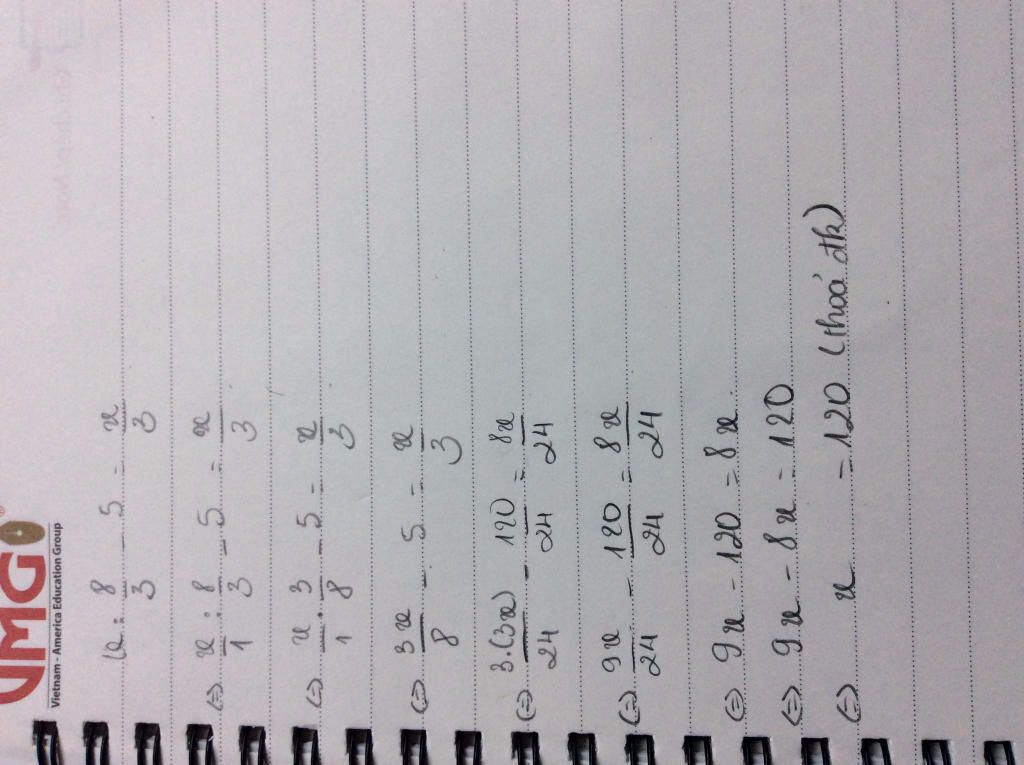 UMG®
Vietnam - America Education Group
x : 8/3 - 5 = x/3
(=) x/1 : 8/3 - 5 = x/3
(=) x/1 . 3/8 - 5 = x/3
(=) 3x/8 - 5 = x/3
(=) 3.(3x)/24 - 120/24 = 8x/24
(=) 9x/24 - 120/24 = 8x/24
(=) 9x - 120 = 8x
(=) 9x - 8x = 120
(=) x = 120 (thoả đk)